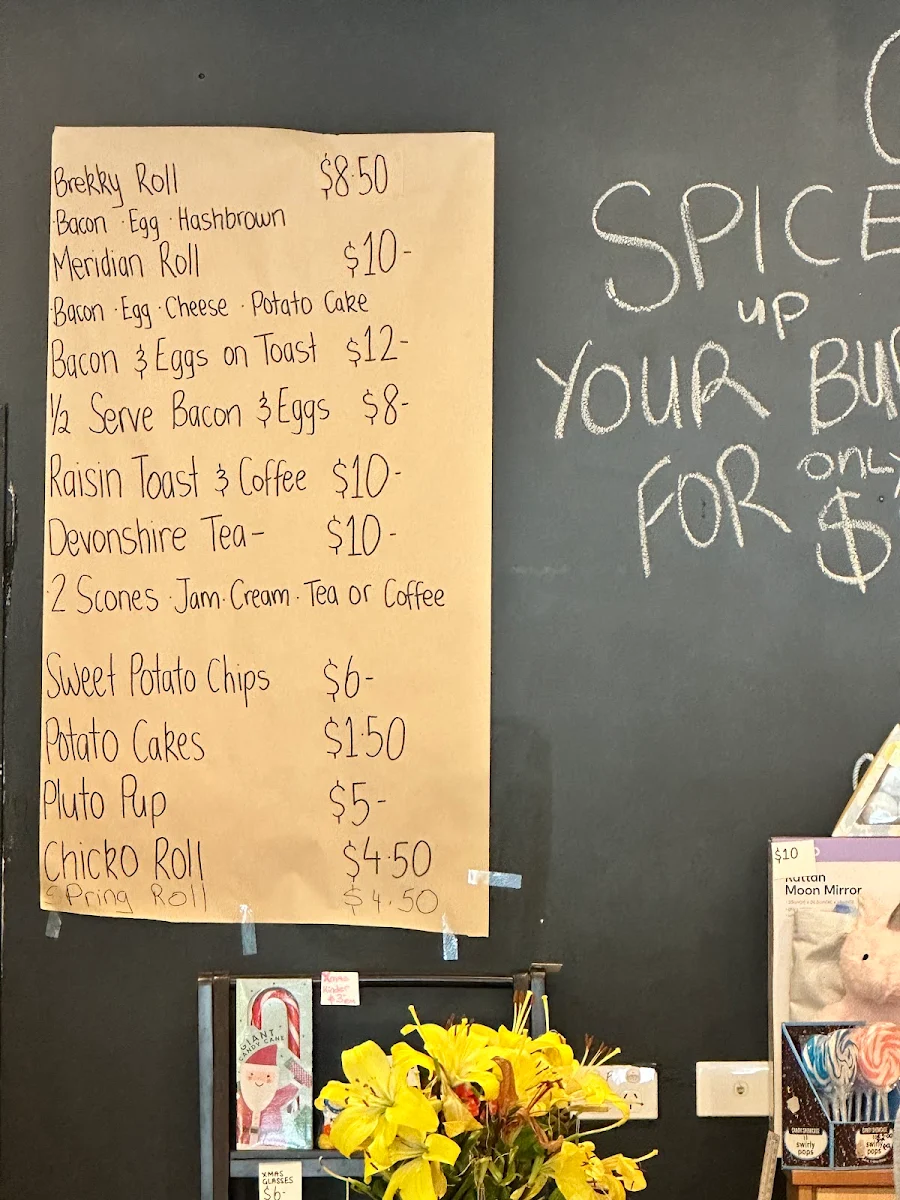 Brekky Roll $8.50
·Bacon ·Egg ·Hashbrown
Meridian Roll $10-
·Bacon ·Egg ·Cheese ·Potato Cake
Bacon & Eggs on Toast $12-
1/2 Serve Bacon & Eggs $8-
Raisin Toast & Coffee $10-
Devonshire Tea- $10-
·2 Scones ·Jam·Cream·Tea or Coffee
Sweet Potato Chips $6-
Potato Cakes $1.50
Pluto Pup $5-
Chicko Roll $4.50
Spring Roll $4.50
SPICE
UP
YOUR
FOR ONLY
$
$10
Rattan
Moon Mirror
Xmas
GIANT
CANDY CANE
XMAS
GLASSES
$6-
swirly
pops
swirly
pops